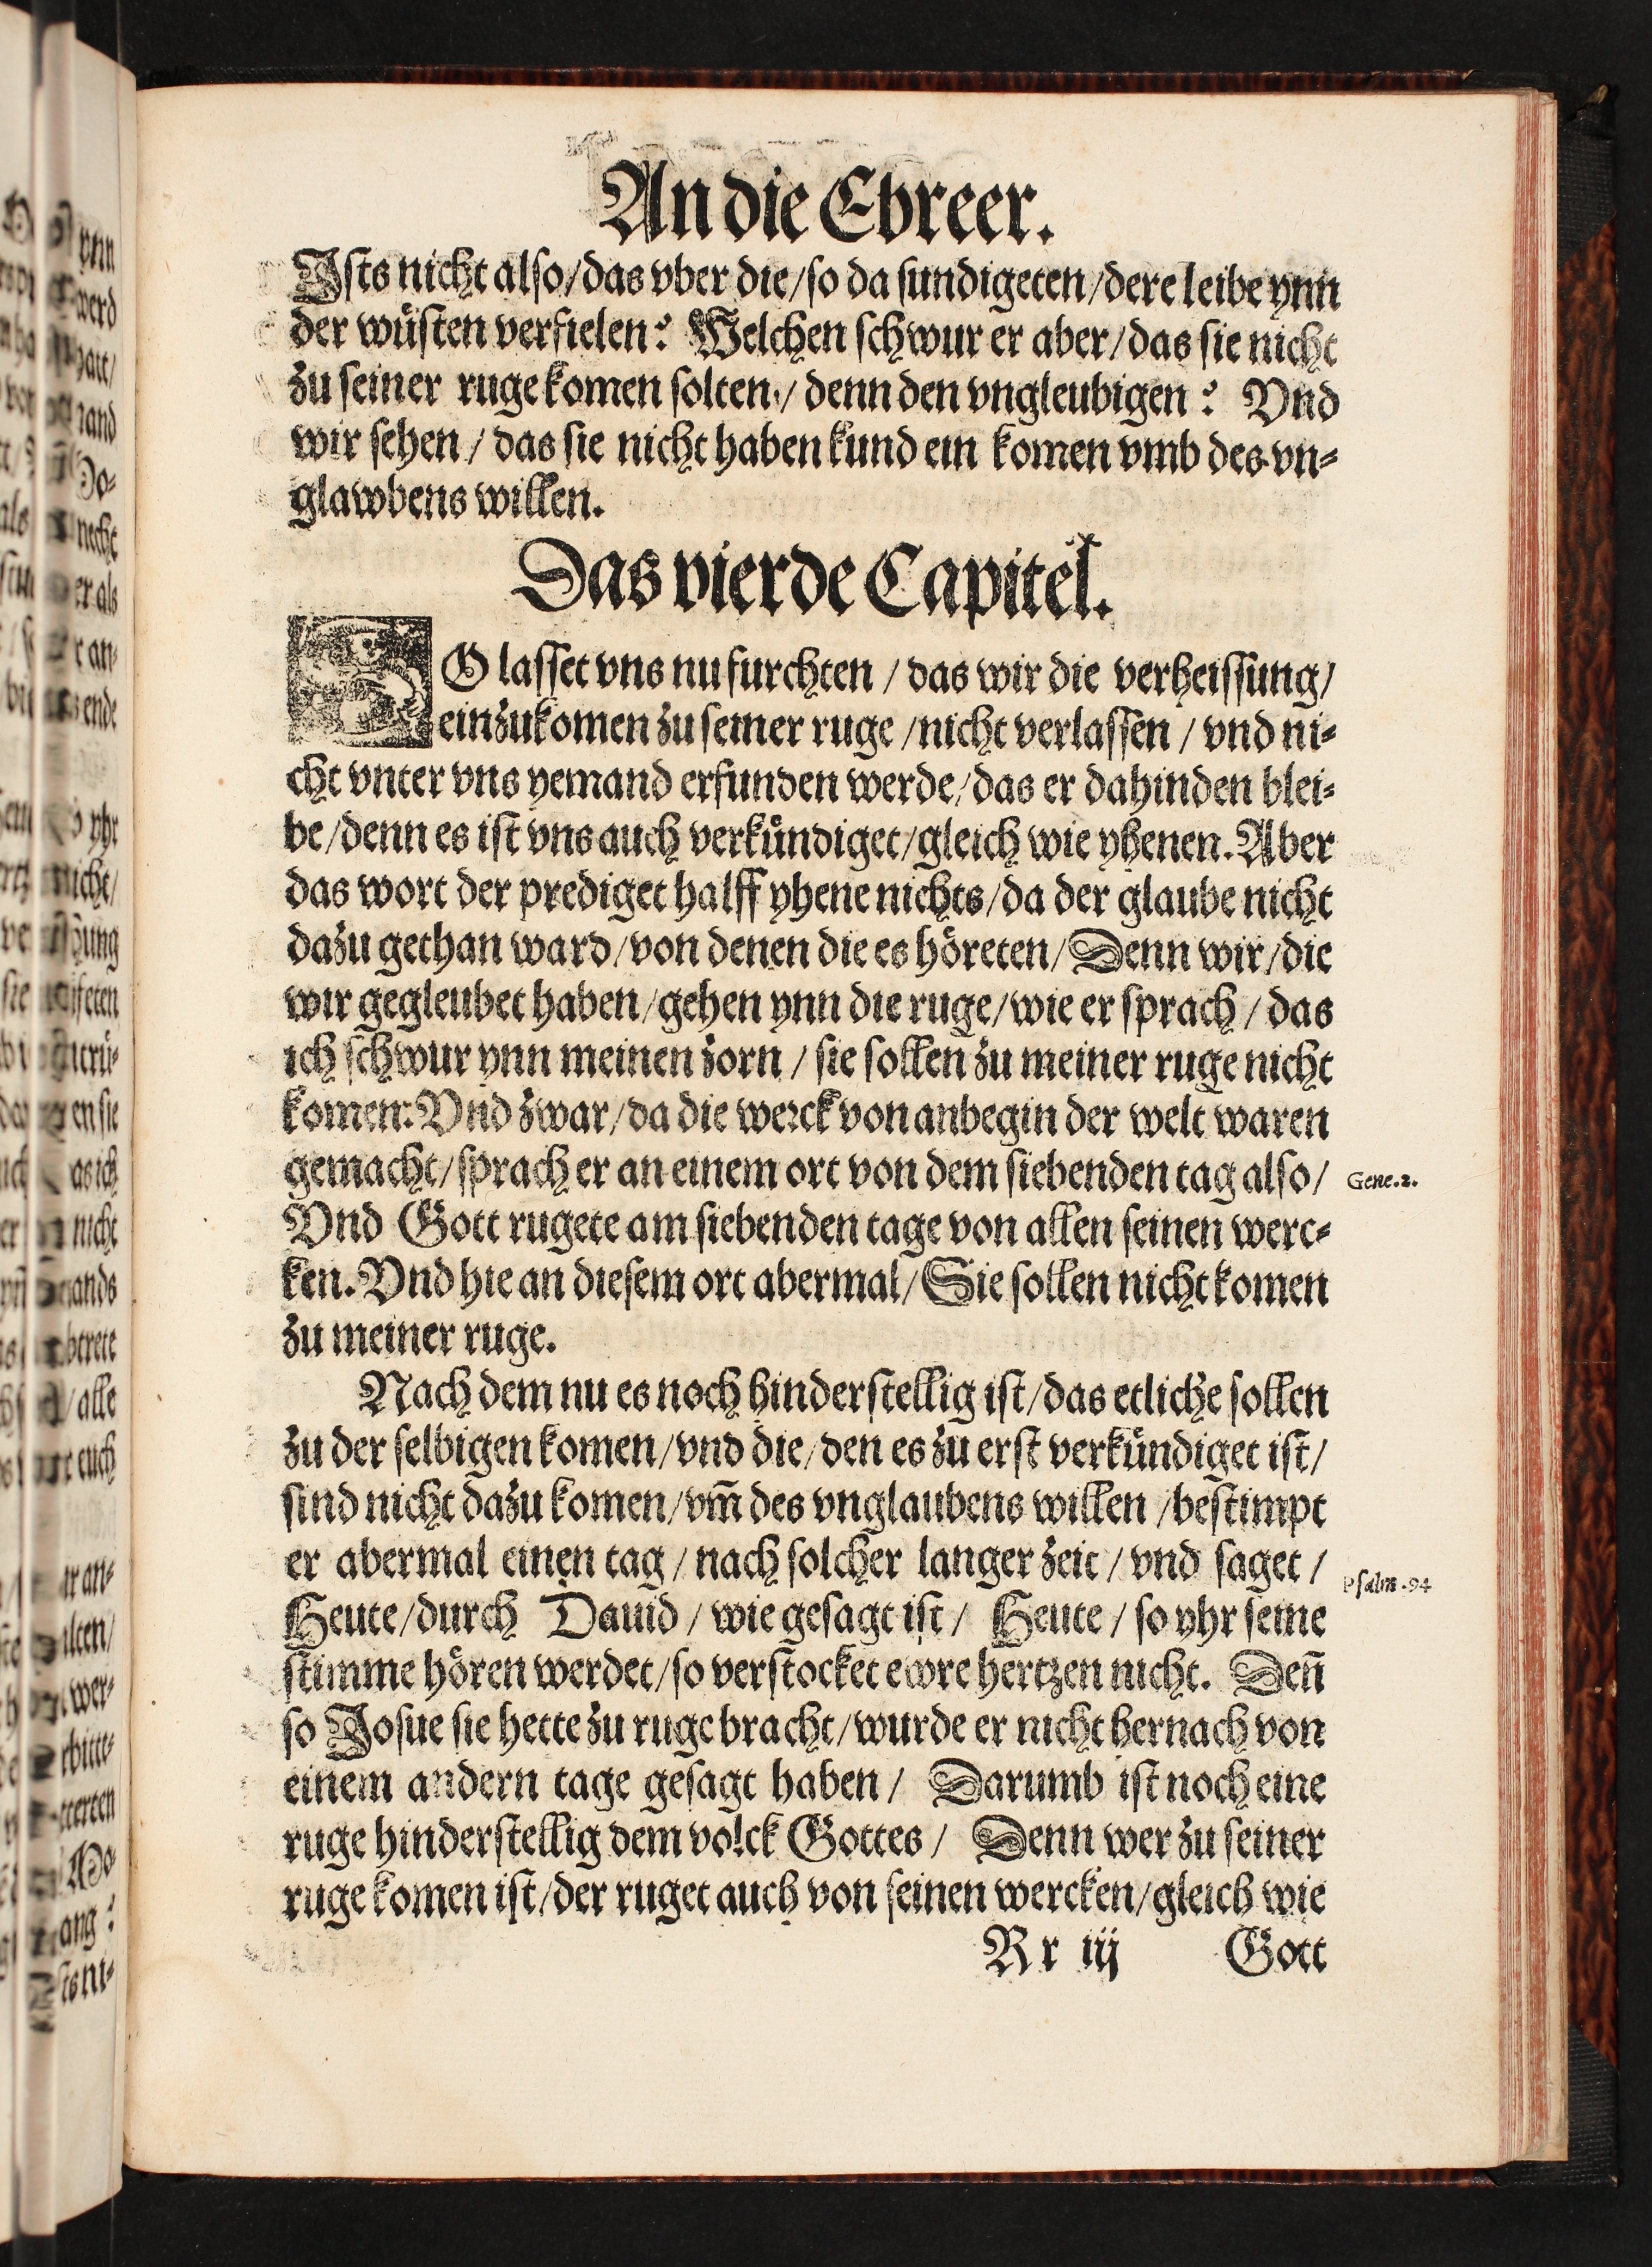 An die Ebreer.
Ists nicht also/das vber die/so da sundigeten/dere leibe ynn
der wüsten verfielen? Welchen schwur er aber/das sie nicht
zu seiner ruge komen solten/denn den vngleubigen? Vnd
wir sehen/das sie nicht haben kund ein komen vmb des vn=
glawbens willen.
Das vierde Capitel.
SO lasset vns nu furchten/das wir die verheissung/
einzukomen zu seiner ruge/nicht verlassen/vnd ni=
cht vnter vns yemand erfunden werde/das er dahinden blei=
be/denn es ist vns auch verkündiget/gleich wie yhenen. Aber
das wort der prediget halff yhene nichts/da der glaube nicht
dazu gethan ward/von denen die es höreten/Denn wir/die
wir gegleubet haben/gehen ynn die ruge/wie er sprach/das
ich schwur ynn meinen zorn/sie sollen zu meiner ruge nicht
komen: Vnd zwar/da die werck von anbegin der welt waren
gemacht/sprach er an einem ort von dem siebenden tag also/
Gene.2.
Vnd Gott rugete am siebenden tage von allen seinen werc=
ken. Vnd hie an diesem ort abermal/Sie sollen nicht komen
zu meiner ruge.
Nach dem nu es noch hinderstellig ist/das etliche sollen
zu der selbigen komen/vnd die/den es zu erst verkündiget ist/
sind nicht dazu komen/vm̃ des vnglaubens willen/bestimpt
er abermal einen tag/nach solcher langer zeit/vnd saget/
Psalm.94
Heute/durch Dauid/wie gesagt ist/Heute/so yhr seine
stimme hören werdet/so verstocket ewre hertzen nicht. Deñ
so Josue sie hette zu ruge bracht/wurde er nicht hernach von
einem andern tage gesagt haben/Darumb ist noch eine
ruge hinderstellig dem volck Gottes/Denn wer zu seiner
ruge komen ist/der ruget auch von seinen wercken/gleich wie
Rr iij Gott